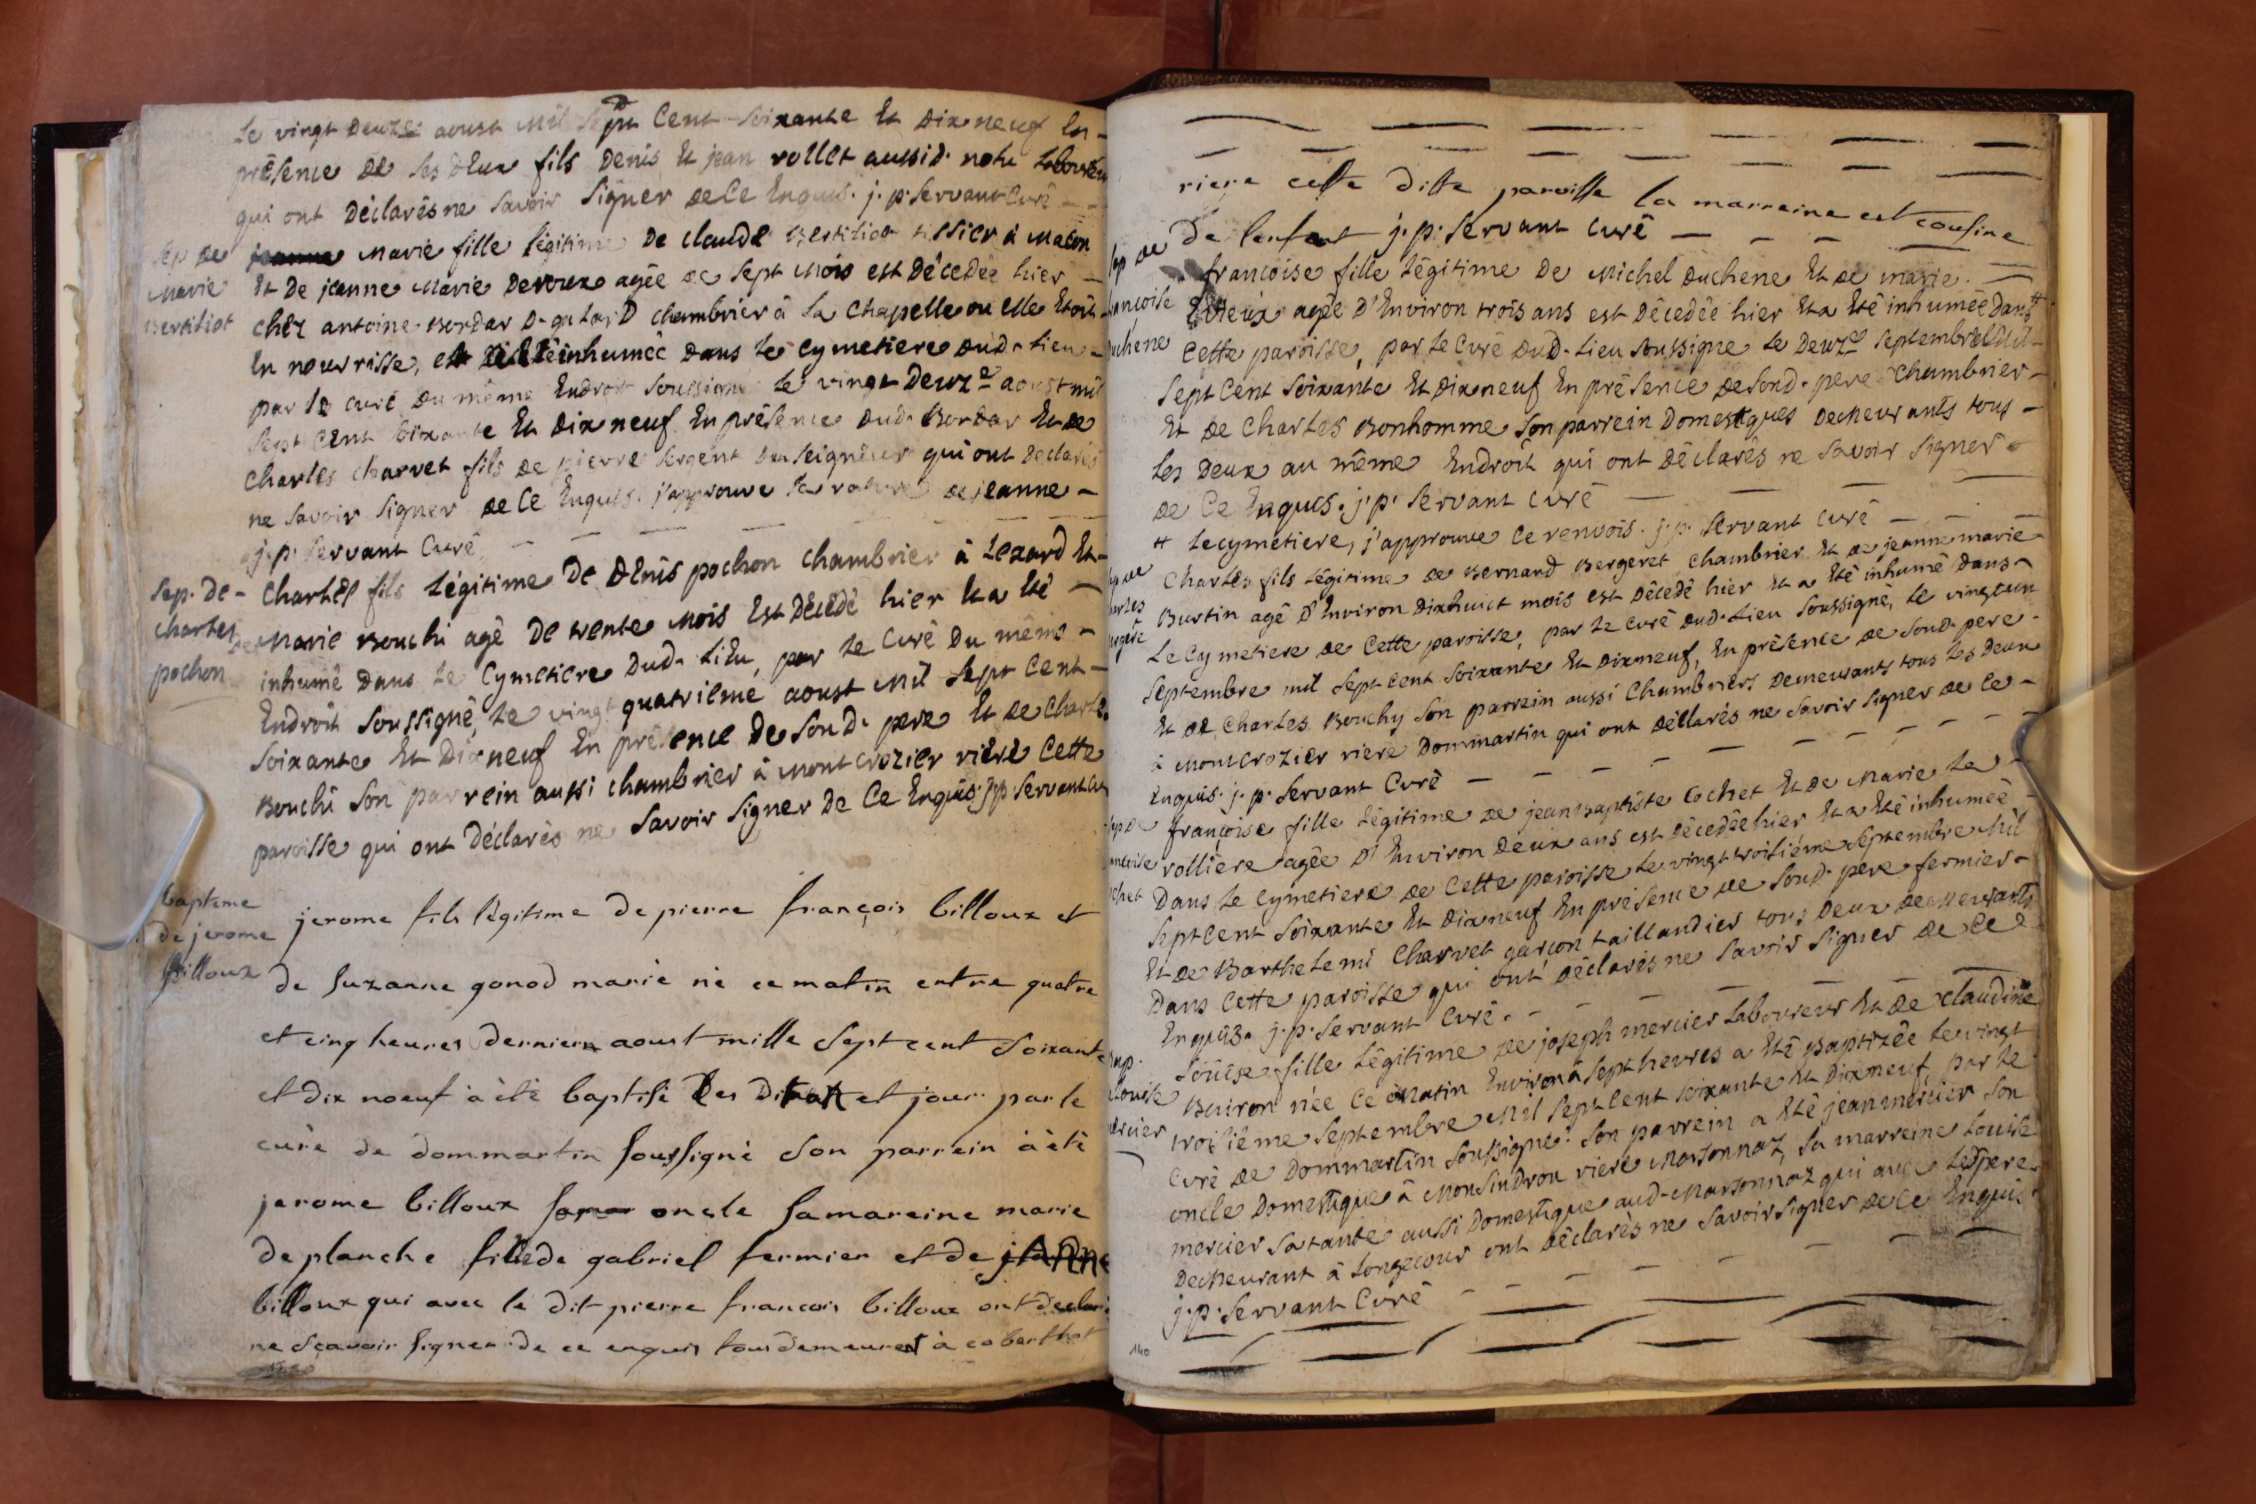 Le vingt Deuze aoust mil sept Cent Soixante Et Dix neuf En
présence De ses deux fils Denis Et jean rollet aussi d. notre Laboureur
qui ont Déclarés ne savoir signer de Ce Enquis. j. p. Servant Curé
Sep de
Marie
Bertiliot
jeanne Marie fille légitime De claude Bertiliot tissier à Macon
Et De jeanne Marie Devoux agée de sept Mois est Décedée hier
chêz antoine Bordar chambrier à la Chapelle ou elle Etoit
En nourrisse, et inhumée Dans Le Cymetiere dud. Lieu
par le curé du même Endroit soussigné le vingt Deuze aoust mil
sept cent soixante Et Dix neuf En présence dud. Bordar Et de
Charles Charvet fils de pierre sergent du seigneur qui ont Declarés
ne savoir signer de Ce Enquis. j'approuve la rature de jeanne
j. p. Servant Curé
Sep. De
Charles
pochon
Charles fils Légitime De Denis pochon Chambrier à Lezard Et
de Marie Bouchi agé De trente Mois Est Décedé hier Et a Eté
inhumé Dans Le Cymetiere Dud. Lieu, par Le Curé Du même
Endroit soussigné, Le vingt quatrieme aoust Mil sept Cent
soixante Et Dix neuf En présence De Sond. pere Et de Charle
Bouchi Son parrein aussi chambrier à Mont crozier riére Cette
paroisse qui ont Déclarés ne savoir signer De Ce Enquis. j. p. Servant Cu
bapteme
de jerome
billoux
jerome fils légitime de pierre françois billoux et
de Suzanne gonod marié né ce matin entre quatre
et cinq heures dernier aoust mille Sept cent Soixante
et dix noeuf à été baptisé les dit et jour par le
curé de dommartin soussigné Son parrein à été
jerome billoux son oncle sa mareine marie
de planche fille de gabriel fermier et de jeanne
billoux qui avec le dit pierre francois billoux ont declaré
ne sçavoir signer de ce enquis tous demeurent à coberthot
riere cette ditte paroisse la marreine est cousine
de l'enfant j. p. Servant curé
sep de
ancoise
uchene
francoise fille Légitime De Michel Duchene Et de marie
Evieux agée D'Environ trois ans est Décedée hier Et a Eté inhumée Dans #
Cette paroisse, par Le Curé Dud. Lieu soussigné Le Deuze septembre Mil
sept Cent soixante Et Dix neuf En présence de sond. pere Chambrier
Et De Charles Bonhomme son parrein Domestiques Demeurants tous
Les Deux au même Endroit qui ont Déclarés ne savoir signer
de Ce Enquis. j. p. Servant curé
# Le cymetiere, j'approuve Ce renvois. j. p. Servant curé
arles
Charles fils Légitime de Bernard Bergeret chambrier Et de jeanne marie
Burtin agé D'Environ Dixhuict mois est Décedé hier Et a Eté inhumé Dans
Le Cymetiere de Cette paroisse, par Le curé dud. Lieu Soussigné, Le vingt un
Septembre mil sept cent soixante Et Dix neuf, En présence de sond. pere
Et de Charles Bouchy son parrein aussi Chambriers Demeurants tous Les Deux
à Montcrozier riere Dommartin qui ont Déclarés ne savoir signer de Ce
Enquis. j. p. Servant Curé
ancoise
chet
françoise fille Légitime de jean Baptiste Cochet Et De Marie La
rolliere agée D'Environ Deux ans est Décedée hier Et a Eté inhumée
Dans Le Cymetiere de Cette paroisse Le vingt troisiéme Septembre Mil
sept Cent Soixante Et Dix neuf En présence de Sond. pere fermier
Et de Barthelemi Charvet garçon taillandier tous Deux Demeurants
Dans Cette paroisse qui ont Déclarés ne Savoir signer De Ce
Enquis. j. p. Servant Curé.
Bap.
Louise
ercier
Loüise fille Légitime de joseph mercier Laboureur Et De Claudine
Buiron née Ce Matin Environ à sept heures a Eté Baptizée Le vingt
troisiéme Septembre Mil sept Cent soixante Et Dix neuf, par Le
Curé de Dommartin soussigné: Son parrein a Eté jean mercier Son
oncle Domestique à Monsindrou riere Marsonnaz, sa marreine Louise
mercier sa tante aussi Domestique aud. Marsonnaz qui avec Led. pere
Demeurant à Longecour ont Déclarés ne savoir signer de Ce Enquis
j. p. Servant Curé
140